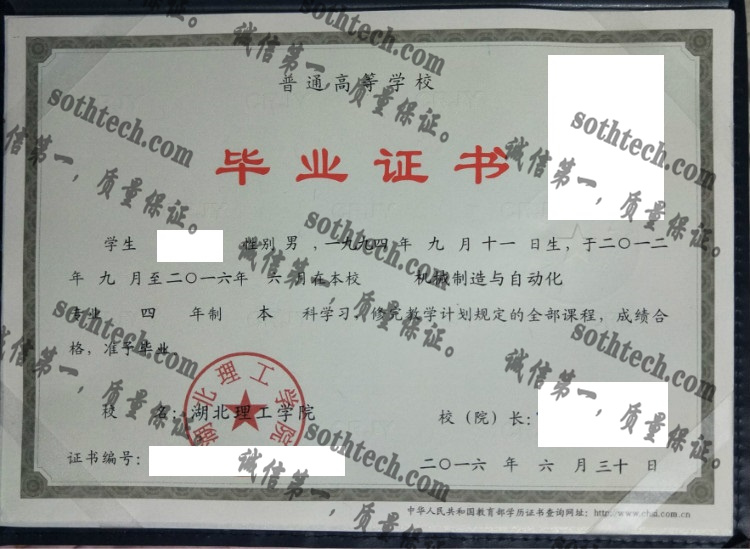 普通高等学校
毕业证书
学生 性别 男 ，一九九四 年 九 月 十一 日生，于二〇一二
年 九 月至二〇一六年 六 月在本校 机械制造与自动化
专业 四 年制 本 科学习，修完教学计划规定的全部课程，成绩合
格，准予毕业
校 名：湖北理工学院
校（院）长：
证书编号：
二〇一六 年 六 月 三十 日
中华人民共和国教育部学历证书查询网址：http://www.chsi.com.cn
湖北理工学院
sothtech.com
诚信第一，质量保证。
sothtech.com
诚信第一，质量保证。
sothtech.com
诚信第一，质量保证。
sothtech.com
诚信第一，质量保证。
sothtech.com
诚信第一，质量保证。
sothtech.com
诚信第一，质量保证。
sothtech.com
诚信第一，质量保证。